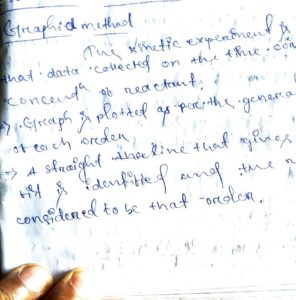 Graphid method
The kinetic experiment is
that data collected on the time
concendn of reactant.
→ Graph is plotted as per the general
of each order.
→ A straight line that gives
is identified and the
considered to be that order.